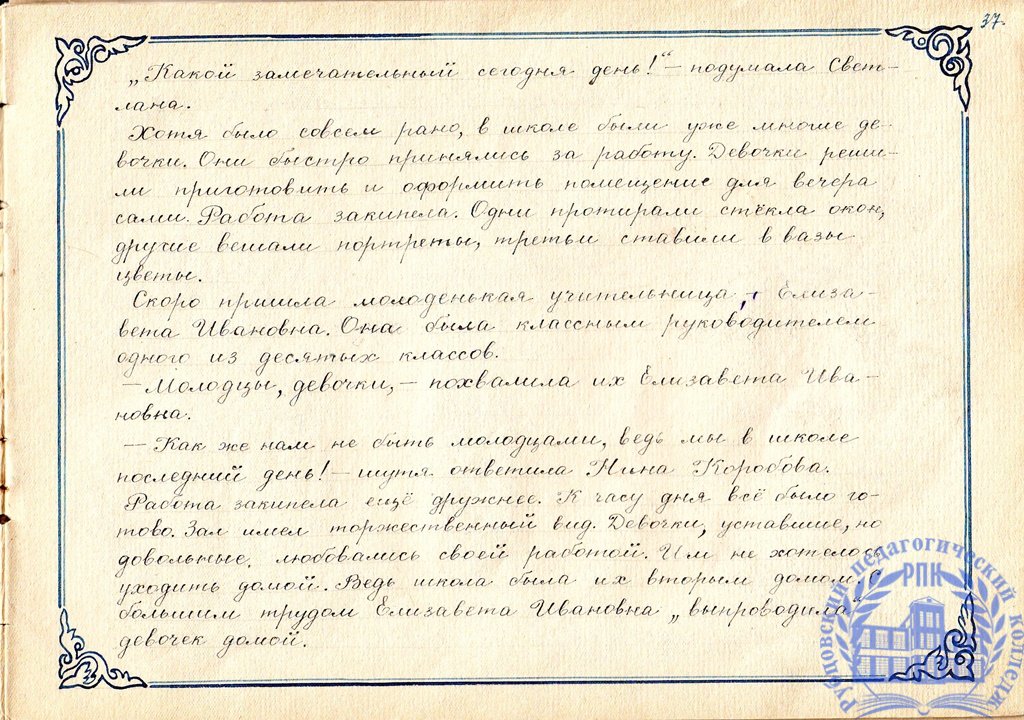 37.
„Какой замечательный сегодня день!“ – подумала Свет-
лана.
Хотя было совсем рано, в школе были уже многие де-
вочки. Они быстро принялись за работу. Девочки реши-
ли приготовить и оформить помещение для вечера
сами. Работа закипела. Одни протирали стёкла окон,
другие вешали портреты, третьи ставили в вазы
цветы.
Скоро пришла молоденькая учительница, – Елиза-
вета Ивановна. Она была классным руководителем
одного из десятых классов.
– Молодцы, девочки, – похвалила их Елизавета Ива-
новна.
– Как же нам не быть молодцами, ведь мы в школе
последний день! – шутя ответила Нина Коробова.
Работа закипела ещё дружнее. К часу дня всё было го-
тово. Зал имел торжественный вид. Девочки, уставшие, но
довольные, любовались своей работой. Им не хотелось
уходить домой. Ведь школа была их вторым домом. С
большим трудом Елизавета Ивановна „выпроводила“
девочек домой.
Рубцовский педагогический колледж
РПК